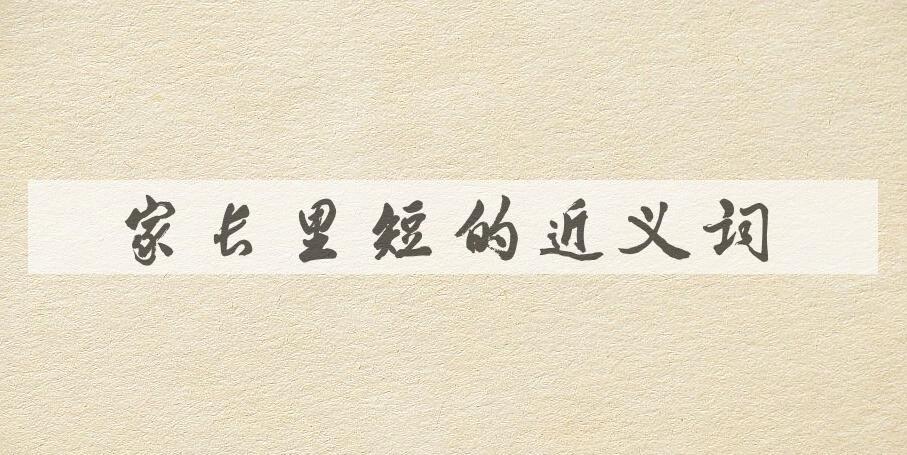 家长里短的近义词